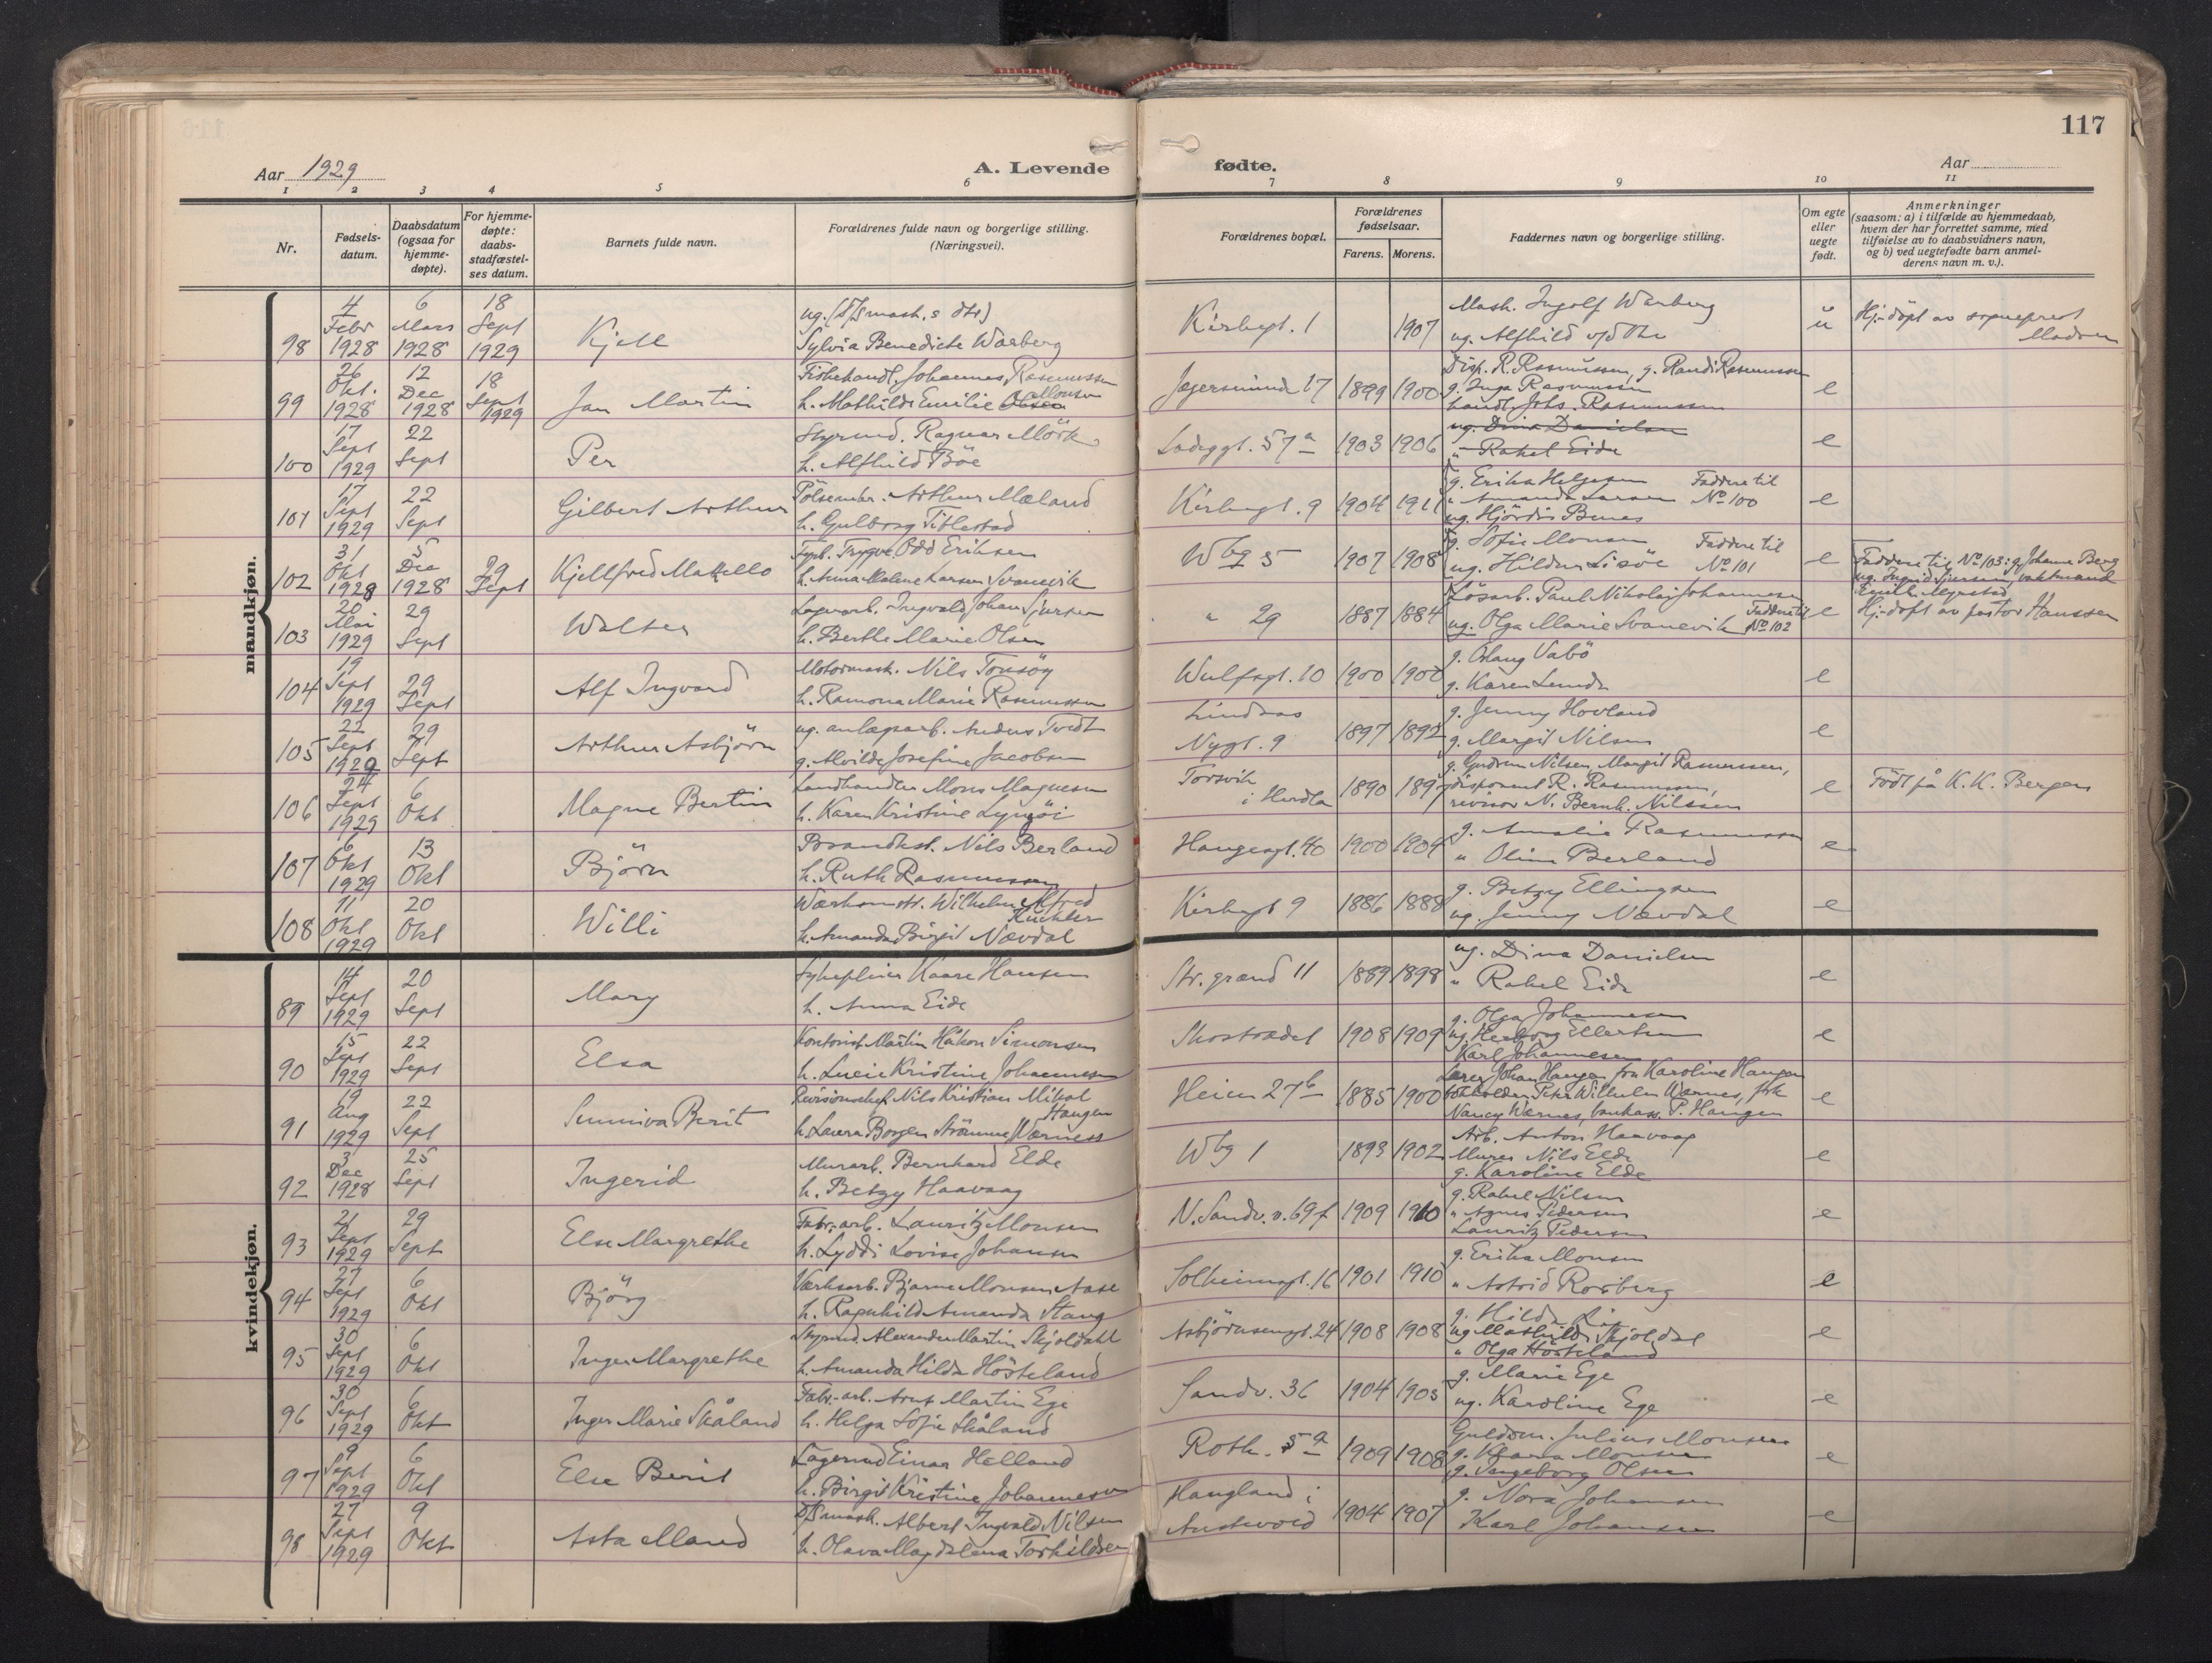 117
Aar 1929
A. Levende
fødte.
Aar
1 2 3 4 5 6 7 8 9 10 11
Nr.
Fødsels-
datum.
Daabsdatum
(ogsaa for
hjemme-
døpte).
For hjemme-
døpte:
daabs-
stadfæstel-
ses datum.
Barnets fulde navn.
Forældrenes fulde navn og borgerlige stilling.
(Næringsvei).
Forældrenes bopæl.
Forældrenes
fødselsaar.
Farens. Morens.
Faddernes navn og borgerlige stilling.
Om egte
eller
uegte
født.
Anmerkninger
(saasom: a) i tilfælde av hjemmedaab,
hvem der har forrettet samme, med
tilføielse av to daabsvidners navn,
og b) ved uegtefødte barn anmel-
derens navn m. v.).
mandkjøn.
98
4
Febr
1928
6
Mars
1928
18
Sept
1929
Kjell
Sylvia Benedicte Warberg
Kirkegt. 1
1907
Mask. Ingolf Warberg
ug. Alfhild
u
Hj.-döpt av sogneprest
99
26
Okt.
1928
12
Dec
1928
18
Sept
1929
Jan Martin
Fiskehandl. Johannes Rasmussen
h. Mathilde Emilie Olsen
Monsen
Jægersmind 17
1899
1900
Disp. R. Rasmussen, g. Randi Rasmussen
g. Inga Rasmussen
handl. Johs. Rasmussen
e
100
17
Sept
1929
22
Sept
Per
Styrmd. Ragnar Mörk
h. Alfhild Böe
Ladeggt. 57a
1903
1906
ug. Dina Danielsen
" Rakel Eide
e
101
17
Sept
1929
22
Sept
Gilbert Arthur
Pölsemkr. Arthur Mæland
h. Gulborg Titlestad
Kirkegt. 9
1904
1911
g. Erika Helgesen
" Amanda Larsen
ug. Hjördis Bunes
Faddere til
No 100
e
102
31
Okt
1928
5
Dec
1928
29
Sept
Kjellfred Makello
Typ. Trygve Odd Eriksen
h. Anna Malene Larsen Svanevik
Wbg 5
1907
1908
g. Sofie Monsen
ug. Hildur Lisöe
Faddere til
No 101
e
Faddere til No 103: g. Johanne Berg
ug. Ingrid Sjursen, vaktmand
103
20
Mai
1929
29
Sept
Walter
Lagerarb. Ingvald Johan Sjursen
h. Berthe Marie Olsen
" 29
1887
1884
Lösarb. Paul Nikolai Johannesen
ug. Olga Marie Svanevik
Faddere til
No 102
e
Hj.-döpt av pastor Hanssen
104
19
Sept
1929
29
Sept
Alf Ingvard
Motormask. Nils Torsöy
h. Ramona Marie Rasmussen
Wulfsgt. 10
1900
1900
g. Aslaug Vabö
g. Karen Lunde
e
105
22
Sept
1929
29
Sept
Arthur Asbjörn
ug. anlægsarb. Anders Tvedt
g. Alvilde Josefine Jacobsen
Lindaas
Nygt. 9
1897
1892
g. Jenny Hovland
g. Margit Nilsen
e
106
24
Sept
1929
6
Okt
Magne Bertin
Landhandler Mons Magnesen
h. Karen Kristine Lynöi
Torsvik
i Herdla
1890
1897
g. Gudrun Nilsen, Margit Rasmussen,
disponent R. Rasmussen,
revisor N. Bernh. Nilssen
e
Födt på K. K. Bergen
107
6
Okt
1929
13
Okt
Björn
Brandkst. Nils Berland
h. Ruth Rasmussen
Haugesgt. 40
1900
1904
g. Amalie Rasmussen
" Oline Berland
e
108
11
Okt
1929
20
Okt
Willi
Wilhelm Alfred
Küchler
h. Amanda Birgit Nævdal
Kirkegt 9
1886
1888
g. Betzy Ellingsen
ug. Jenny Nævdal
e
kvindekjøn.
89
14
Sept
1929
20
Sept
Mary
Sykepleier Kaare Hansen
h. Anna Eide
Str. grænd 11
1889
1898
ug. Dina Danielsen
" Rakel Eide
e
90
15
Sept
1929
22
Sept
Elsa
Kontorist Martin Håkon Simonsen
h. Lucie Kristine Johannesen
Skostrædet
1908
1909
g. Olga Johannesen
ug. Herborg Ellertsen
Karl Johannesen
e
91
19
Aug
1929
22
Sept
Sunniva Berit
Revisionschef Nils Kristian Mikal
Haugen
h. Laura Borgen Strömme Werness
Heien 27b
1885
1900
Lærer Johan Haugen fru Karoline Haugen
bokholder Peter Wilhelm Wernes, frk
Nancy Wernes, bankass. P. Haugen
e
92
3
Dec
1928
25
Sept
Ingerid
Murarb. Bernhard Elde
h. Betzy Haavaag
Wbg 1
1893
1902
Arb. Anton Haavaag
Murer Nils Elde
g. Karoline Elde
e
93
21
Sept
1929
29
Sept
Else Margrethe
Fabr.-arb. Lauritz Monsen
h. Lyddi Lovise Johansen
N. Sandv. v. 69f
1909
1910
g. Rakel Nilsen
" Agnes Pedersen
Lauritz Pedersen
e
94
27
Sept
1929
6
Okt
Björg
Værksarb. Bjarne Monsen Aase
h. Ragnhild Amanda Stang
Solheimsgt. 16
1901
1910
g. Erika Monsen
" Astrid Rosberg
e
95
30
Sept
1929
6
Okt
Inger Margrethe
Styrmd. Alexander Martin Skjoldahl
h. Amanda Hilda Hösteland
Asbjörnsengt. 24
1908
1908
g. Hilda
ug Mathilde Skjoldal
" Olga Hösteland
e
96
30
Sept
1929
6
Okt
Inger Marie Skåland
Fabr.-arb. Arnt Martin Ege
h. Helga Sofie Skåland
Sandv. 36
1904
1905
g. Marie Ege
ug. Karoline Ege
e
97
9
Sept
1929
6
Okt
Else Berit
Lagermd Einar Helland
h. Birgit Kristine Johannesen
Roth. 5a
1909
1908
Guldsm. Julius Monsen
g. Klara Monsen
g. Ingeborg Olsen
e
98
27
Sept
1929
9
Okt
Asta Maud
D/S mask. Albert Ingvald Nilsen
h. Olava Magdalena Torkildsen
Haugland i
Austevold
1904
1907
g. Nora Johansen
Karl Johansen
e